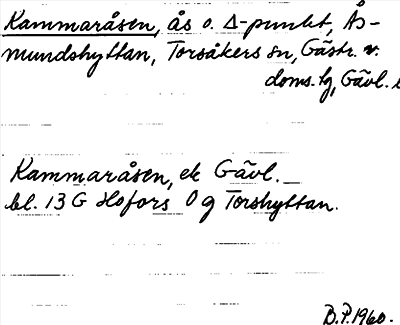 Kammaråsen, ås o. Δ-punkt, Ås-
mundshyttan, Torsåkers sn, Gästr. v.
doms. tg, Gävl.
Kammaråsen, ek Gävl.
bl. 13 G Hofors 0 g Torshyttan.
B.P. 1960.